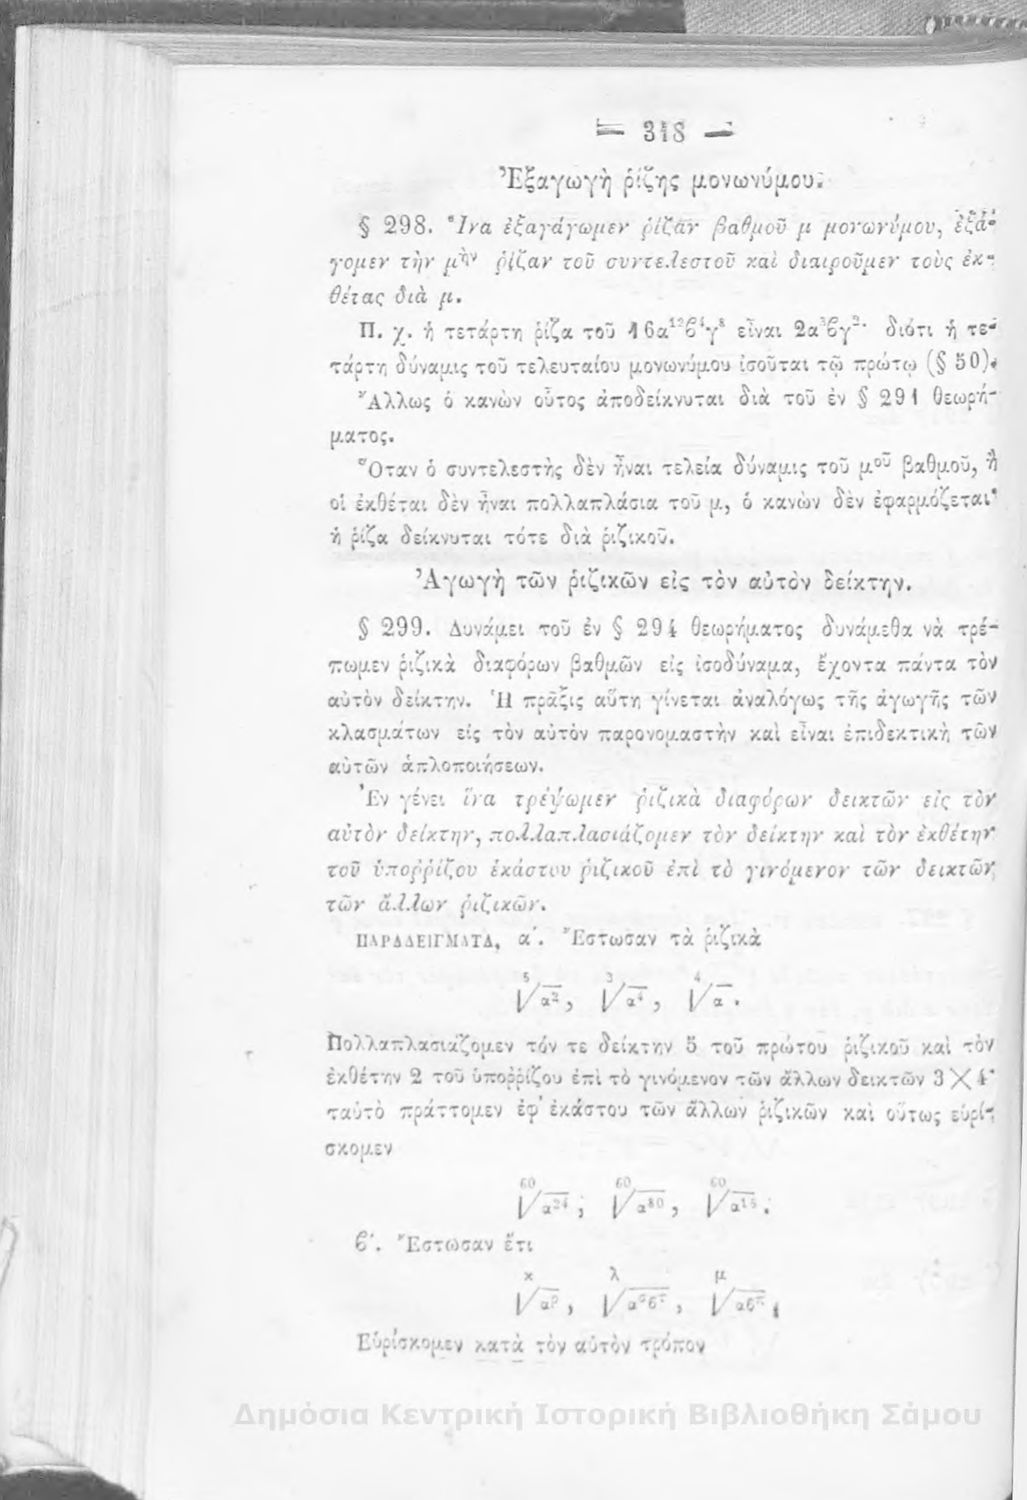 — 318 —
Ἐξαγωγὴ ῥίζης μονωνύμου.
§ 298. Ἵνα ἐξαγάγωμεν ῥίζαν βαθμοῦ μ μονωνύμου, ἐξά-
γομεν τὴν μὴν ῥίζαν τοῦ συντελεστοῦ καὶ διαιροῦμεν τοὺς ἐκ-
θέτας διὰ μ.
Π. χ. ἡ τετάρτη ῥίζα τοῦ 16α¹²β⁴γ⁸ εἶναι 2α³βγ²· διότι ἡ τε-
τάρτη δύναμις τοῦ τελευταίου μονωνύμου ἰσοῦται τῷ πρώτῳ (§ 50).
Ἄλλως ὁ κανὼν οὗτος ἀποδείκνυται διὰ τοῦ ἐν § 291 θεωρή-
ματος.
Ὅταν ὁ συντελεστὴς δὲν ᾖναι τελεία δύναμις τοῦ μοῦ βαθμοῦ, ἢ
οἱ ἐκθέται δὲν ᾖναι πολλαπλάσια τοῦ μ, ὁ κανὼν δὲν ἐφαρμόζεται·
ἡ ῥίζα δείκνυται τότε διὰ ῥιζικοῦ.
Ἀγωγὴ τῶν ῥιζικῶν εἰς τὸν αὐτὸν δείκτην.
§ 299. Δυνάμει τοῦ ἐν § 294 θεωρήματος δυνάμεθα νὰ τρέ-
πωμεν ῥιζικὰ διαφόρων βαθμῶν εἰς ἰσοδύναμα, ἔχοντα πάντα τὸν
αὐτὸν δείκτην. Ἡ πρᾶξις αὕτη γίνεται ἀναλόγως τῆς ἀγωγῆς τῶν
κλασμάτων εἰς τὸν αὐτὸν παρονομαστὴν καὶ εἶναι ἐπιδεκτικὴ τῶν
αὐτῶν ἁπλοποιήσεων.
Ἐν γένει ἵνα τρέψωμεν ῥιζικὰ διαφόρων δεικτῶν εἰς τὸν
αὐτὸν δείκτην, πολλαπλασιάζομεν τὸν δείκτην καὶ τὸν ἐκθέτην
τοῦ ὑποῤῥίζου ἑκάστου ῥιζικοῦ ἐπὶ τὸ γινόμενον τῶν δεικτῶν
τῶν ἄλλων ῥιζικῶν.
ΠΑΡΑΔΕΙΓΜΑΤΑ, α΄. Ἔστωσαν τὰ ῥιζικὰ
⁵√α², ³√α⁴, ⁴√α.
Πολλαπλασιάζομεν τόν τε δείκτην 5 τοῦ πρώτου ῥιζικοῦ καὶ τὸν
ἐκθέτην 2 τοῦ ὑποῤῥίζου ἐπὶ τὸ γινόμενον τῶν ἄλλων δεικτῶν 3×4·
ταὐτὸ πράττομεν ἐφ' ἑκάστου τῶν ἄλλων ῥιζικῶν καὶ οὕτως εὑρί-
σκομεν
⁶⁰√α²⁴, ⁶⁰√α⁸⁰, ⁶⁰√α¹⁵.
β΄. Ἔστωσαν ἔτι
Εὑρίσκομεν κατὰ τὸν αὐτὸν τρόπον
Δημόσια Κεντρική Ιστορική Βιβλιοθήκη Σάμου